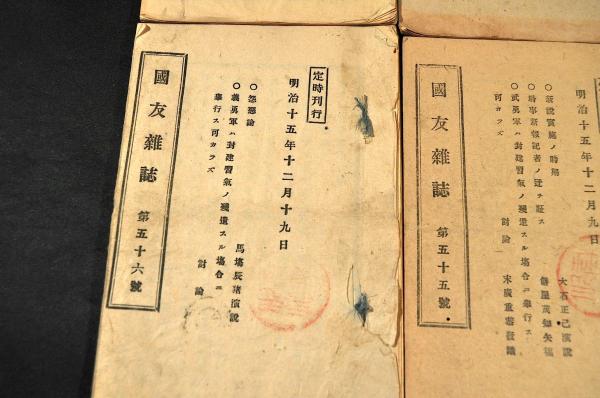 定時刊行
明治十五年十二月十九日
○怨戀論
馬塲辰猪演説
○義勇軍ハ封建習氣ノ殘遺スル塲合ニ
擧行ス可カラズ
討論
國友雜誌
第五十六號
明治十五年十二月九日
大石正己演説
○時事新報記者ノ迂ヲ証ス
○武勇軍ハ封建習氣ノ殘遺スル塲合ニ擧行ス
可カラズ
討論
末廣重恭
國友雜誌
第五十五號